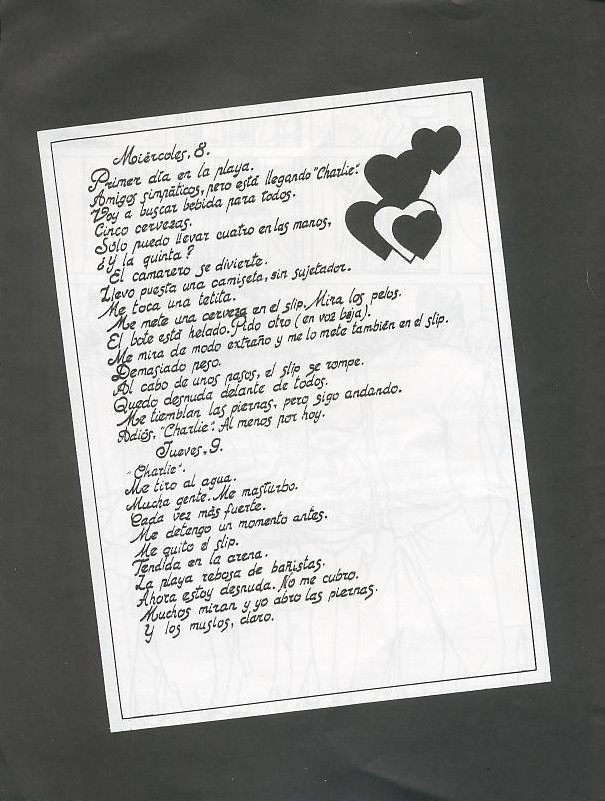 Moiércoles, 8.
Primer día en la playa.
Amigos simpáticos, pero está llegando "Charlie".
Voy a buscar bebida para todos.
Cinco cervezas.
Sólo puedo llevar cuatro en las manos,
¿Y la quinta?
El camarero se divierte.
Llevo puesta una camiseta, sin sujetador.
Me toca una tetita.
Me mete una cerveza en el slip. Mira los pelos.
El bote está helado. Pido otro (en voz baja).
Me mira de modo extraño y me lo mete también en el slip.
Demasiado peso.
Al cabo de unos pasos, el slip se rompe.
Quedo desnuda delante de todos.
Me tiemblan las piernas, pero sigo andando.
Adiós, "Charlie". Al menos por hoy.
Jueves, 9.
"Charlie".
Me tiro al agua.
Mucha gente. Me masturbo.
Cada vez más fuerte.
Me detengo un momento antes.
Me quito el slip.
Tendida en la arena.
La playa rebosa de bañistas.
Ahora estoy desnuda. No me cubro.
Muchos miran y yo abro las piernas.
Y los muslos, claro.